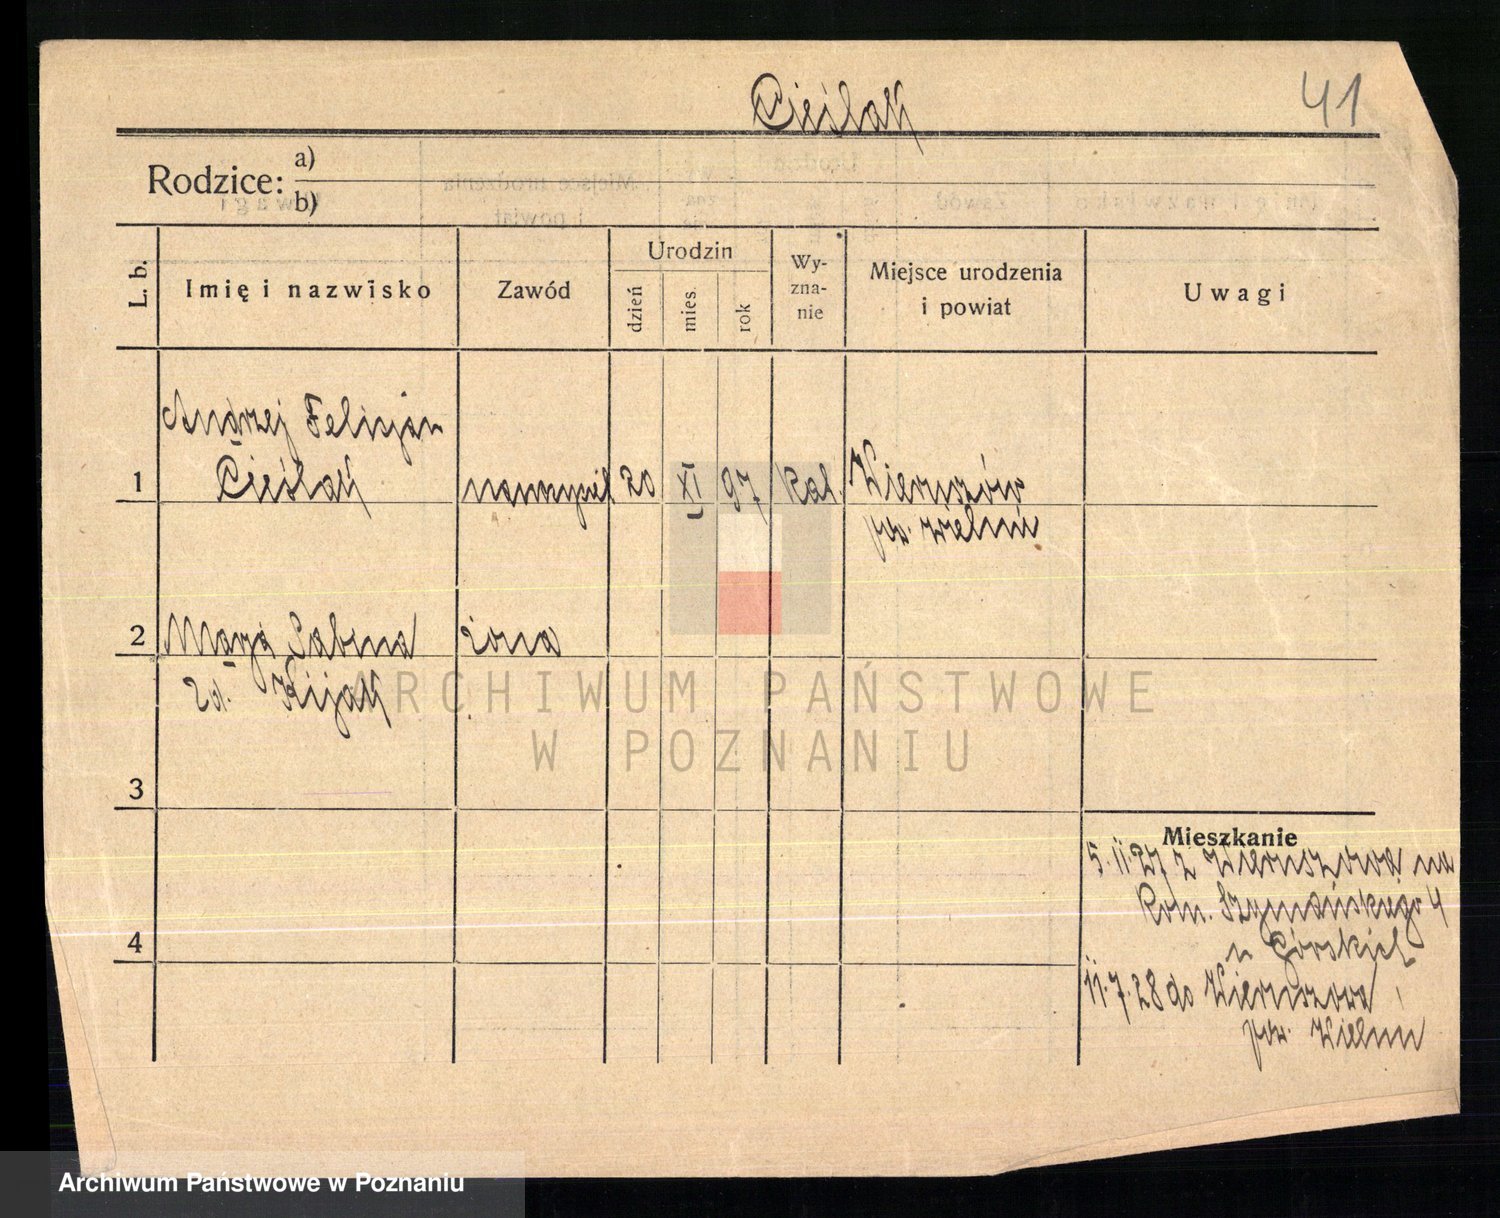 Cieślak
41
Rodzice:
a)
b)
L. b.
Imię i nazwisko
Zawód
Urodzin
dzień
mies.
rok
Wy-
zna-
nie
Miejsce urodzenia
i powiat
Uwagi
Andrzej Felicjan
1 Cieślak nauczyciel 20 XI 97 kat. Wieruszów
pow. Wieluń
2 Marja Sabina żona
zd. Kijak
3
4
Mieszkanie
5.11.27 z Wieruszowa na
Rom. Szymańskiego 4
u Górskich
11.7.28 do Wieruszowa
pow. Wieluń
ARCHIWUM PAŃSTWOWE
W POZNANIU
Archiwum Państwowe w Poznaniu